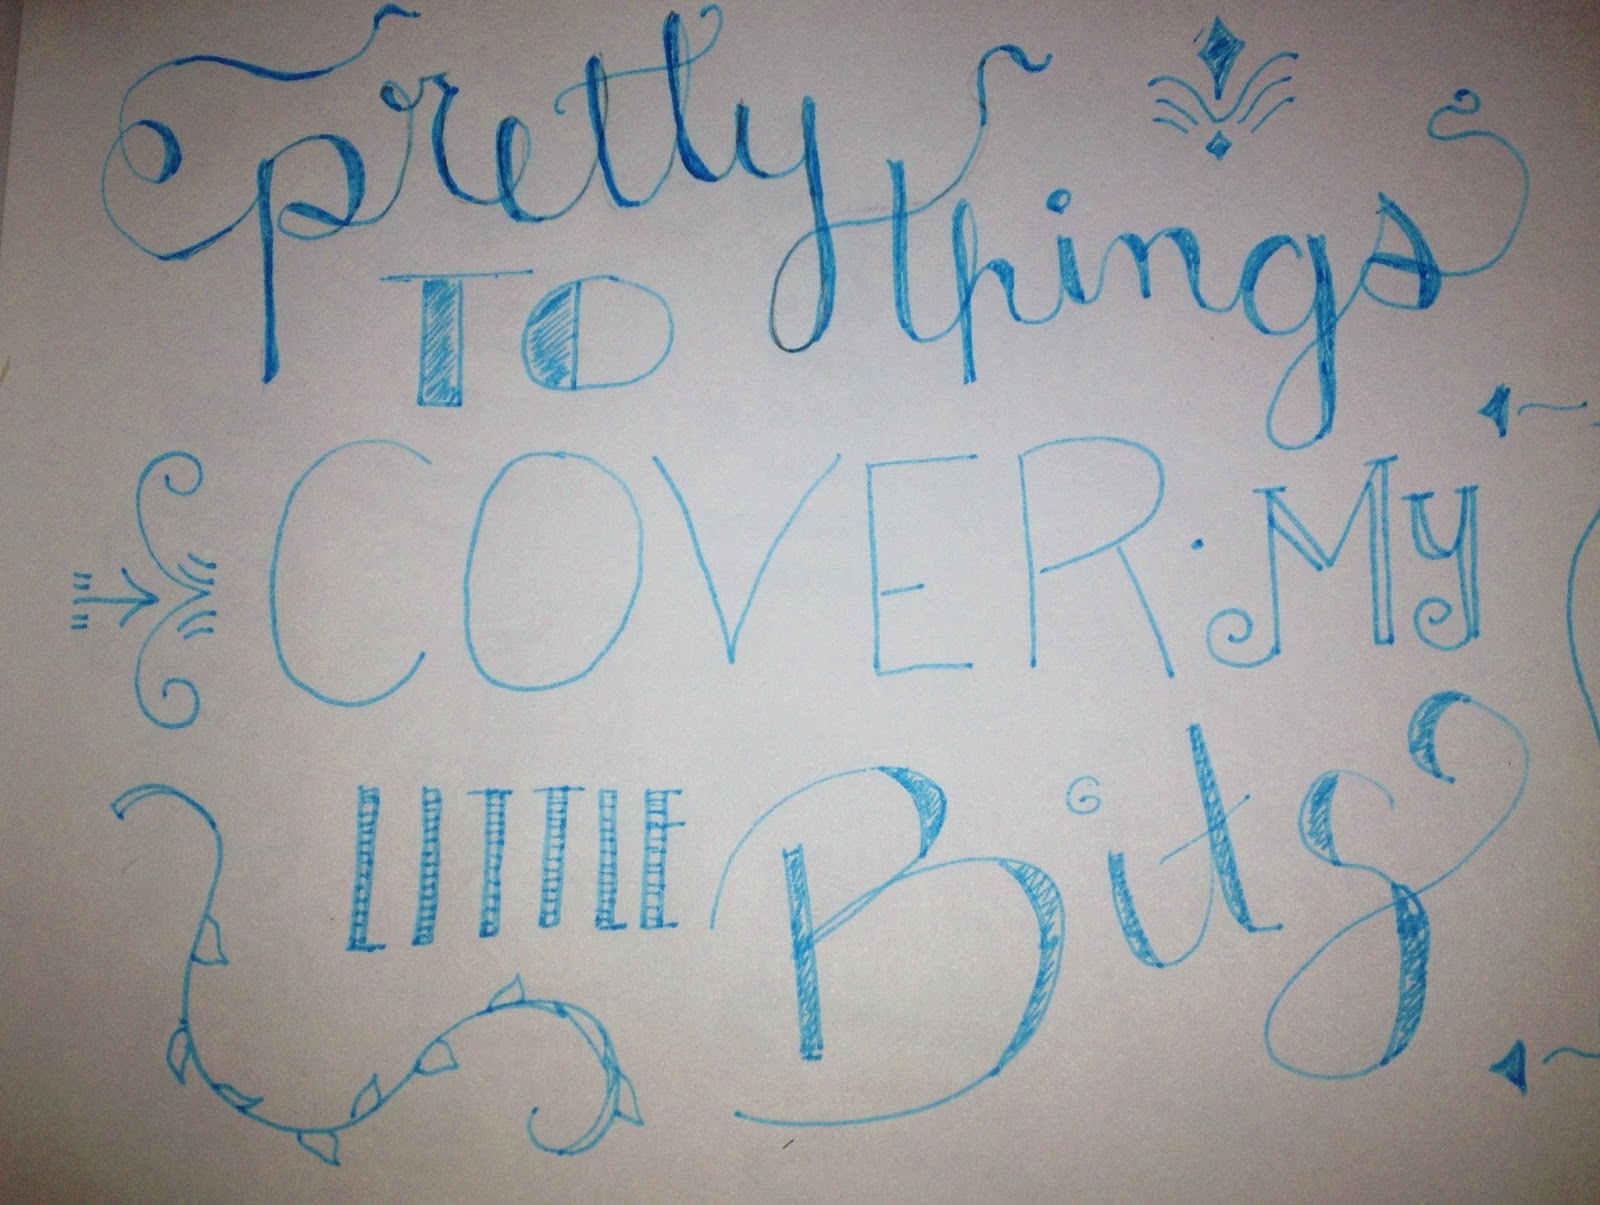 pretty things
TO
COVER MY
LITTLE Bits